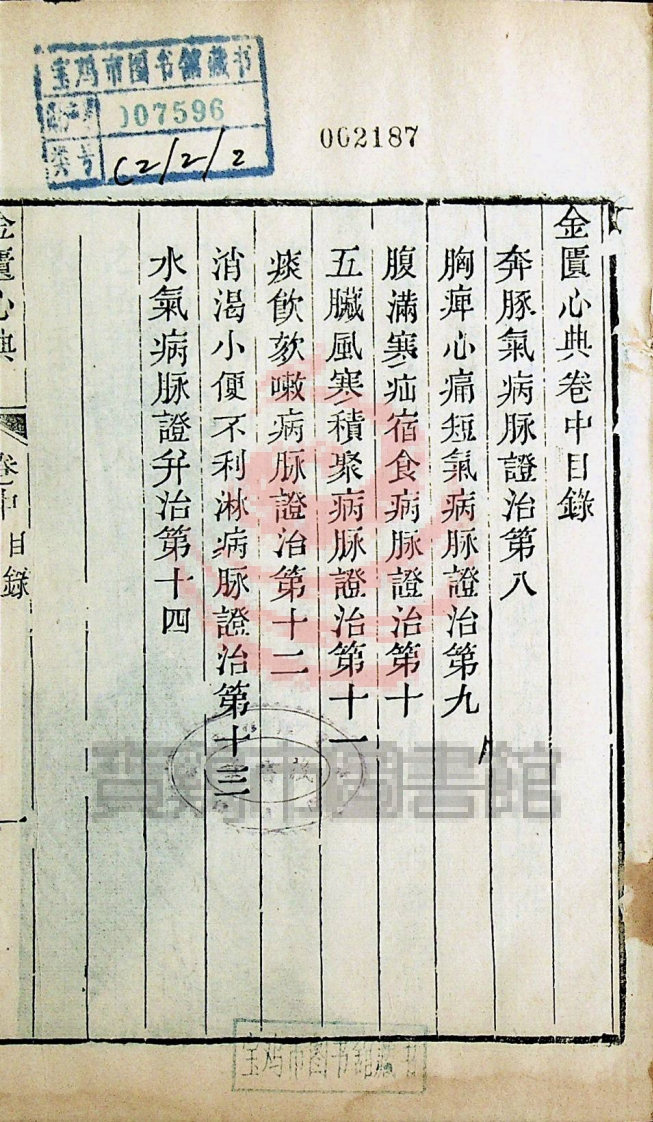 宝鸡市图书馆藏书
007596
类号 C2/2/2
002187
金匱心典卷中目錄
奔豚氣病脉證治第八
胸痺心痛短氣病脉證治第九
腹滿寒疝宿食病脉證治第十
五臟風寒積聚病脉證治第十一
痰飲欬嗽病脉證治第十二
消渴小便不利淋病脉證治第十三
水氣病脉證并治第十四
金匱心典
卷中
目錄
寶鷄市圖書館
宝鸡市图书馆藏书